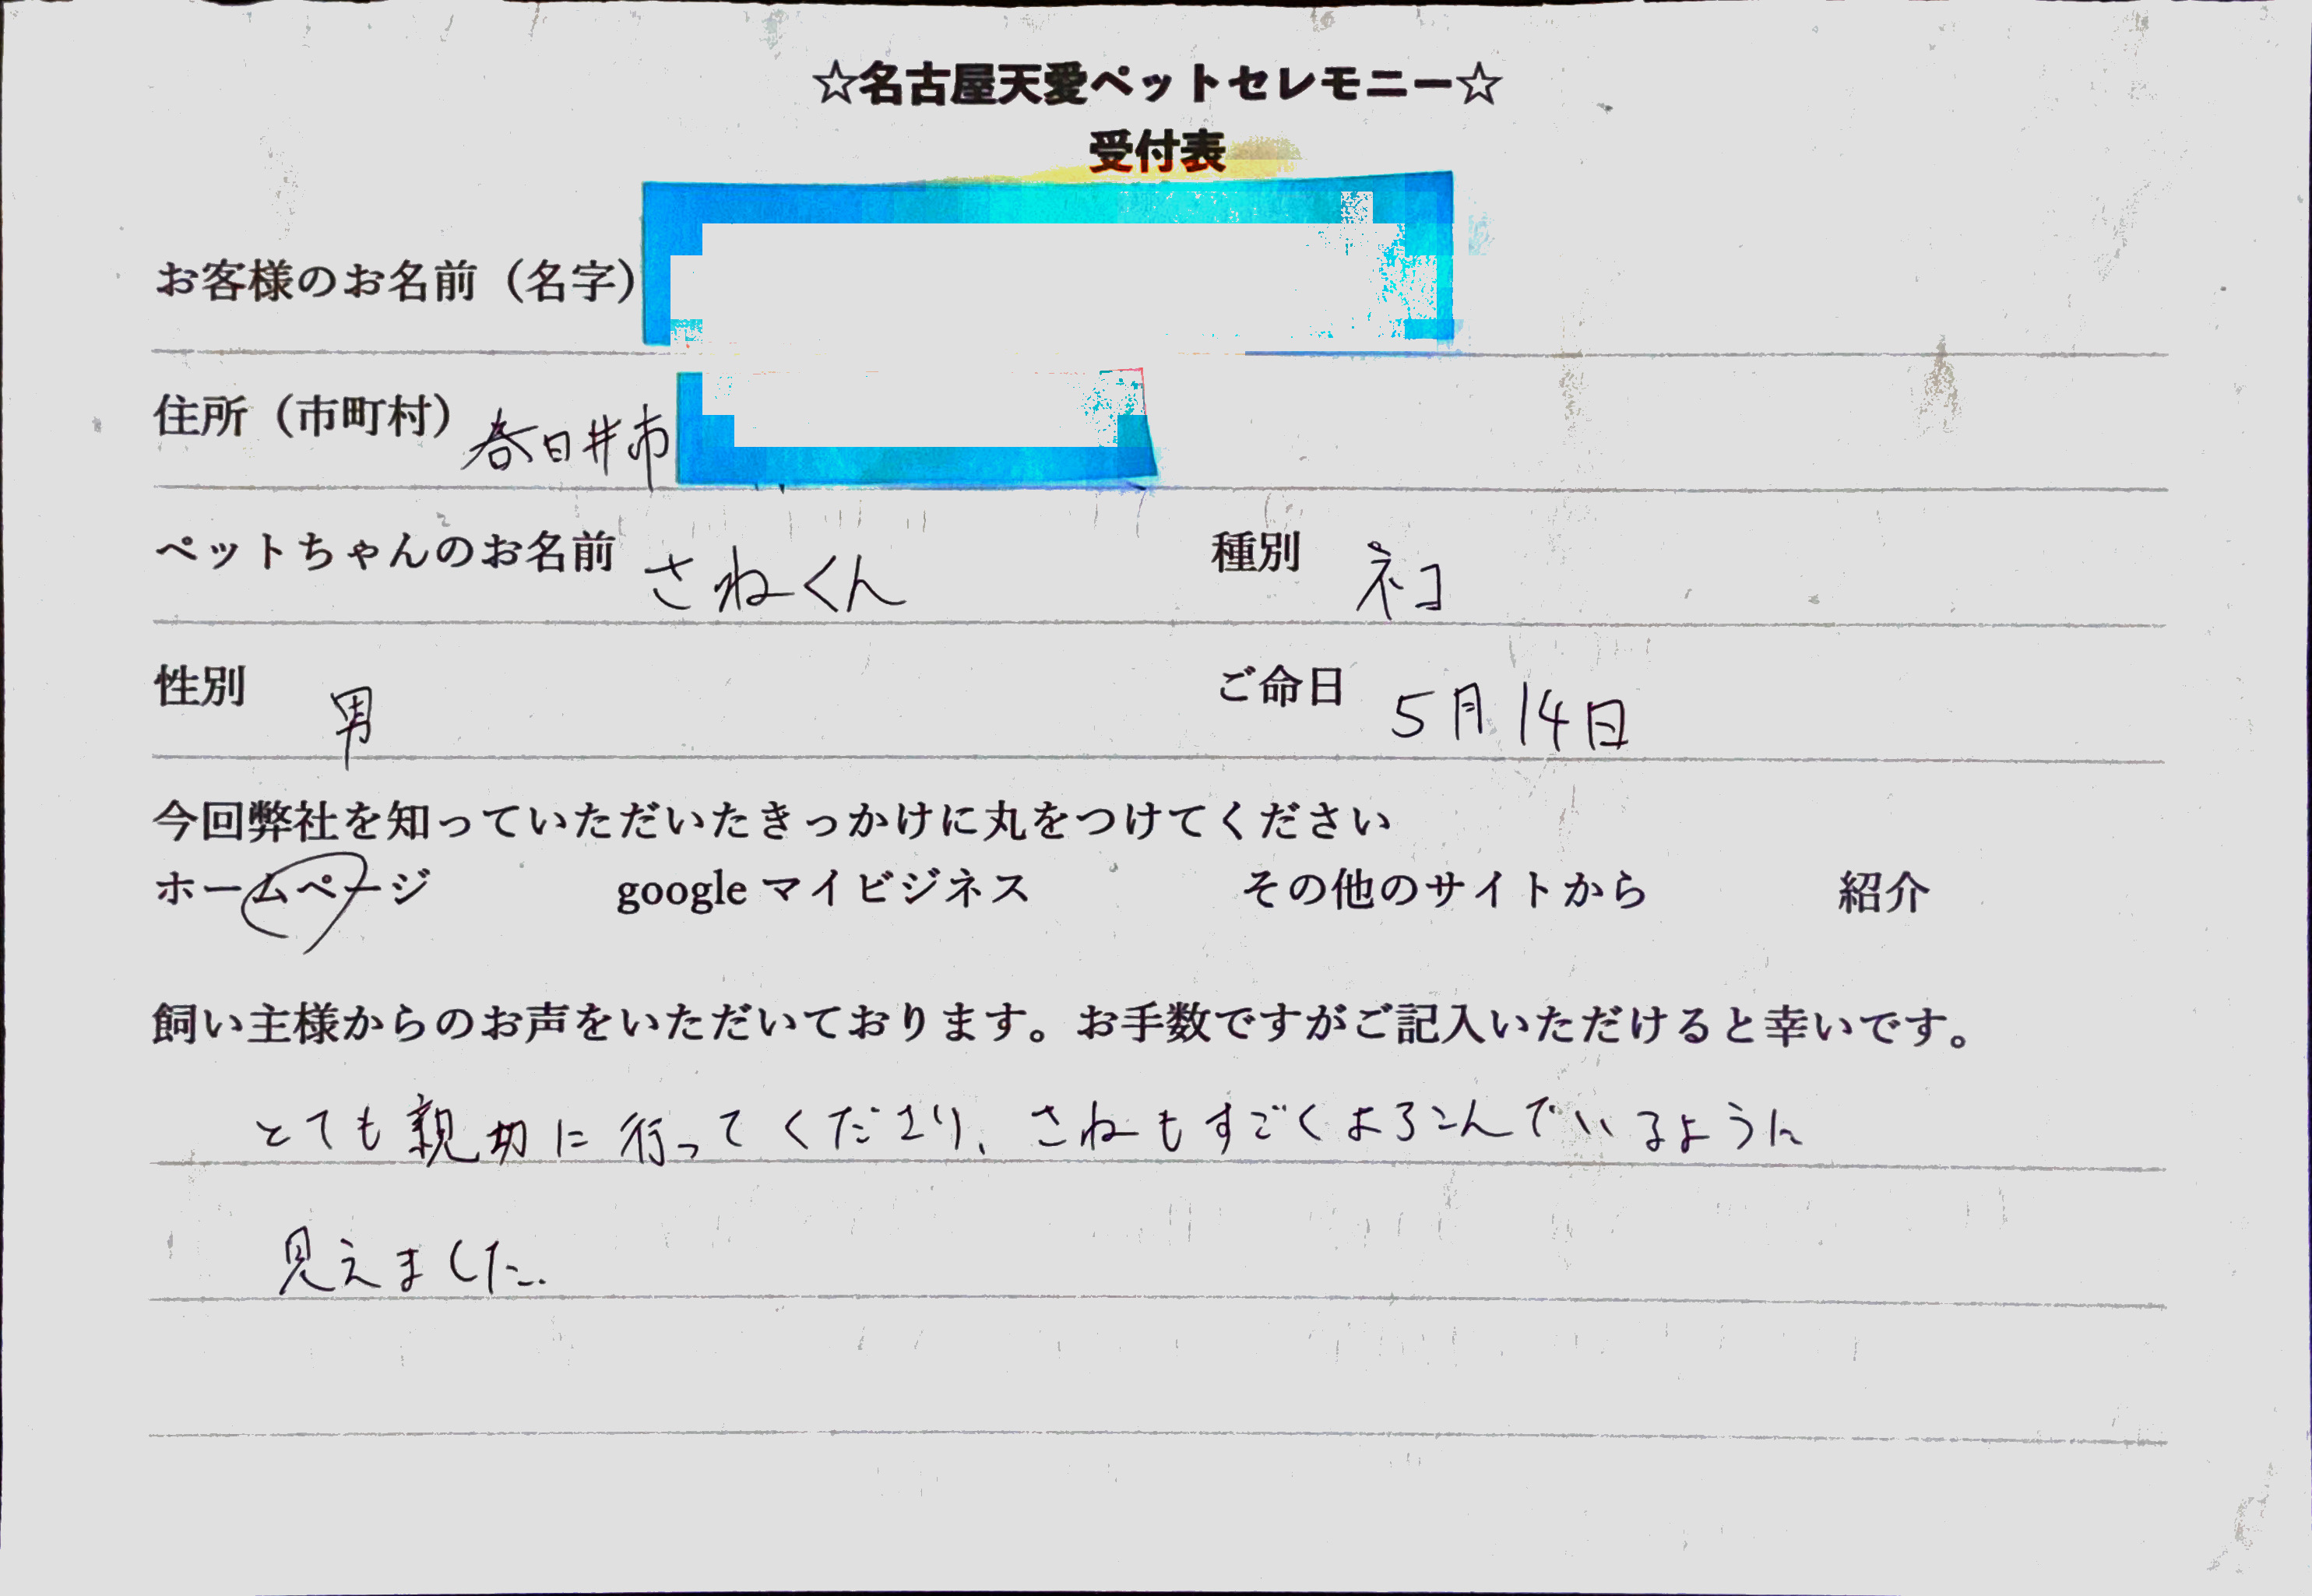 ☆名古屋天愛ペットセレモニー☆
受付表
お客様のお名前（名字）
住所（市町村） 春日井市
ペットちゃんのお名前 さねくん 種別 ネコ
性別 男 ご命日 5月14日
今回弊社を知っていただいたきっかけに丸をつけてください
ホームページ google マイビジネス その他のサイトから 紹介
飼い主様からのお声をいただいております。お手数ですがご記入いただけると幸いです。
とても親切に行ってくださり、さねもすごくよろこんでいるように
見えました。